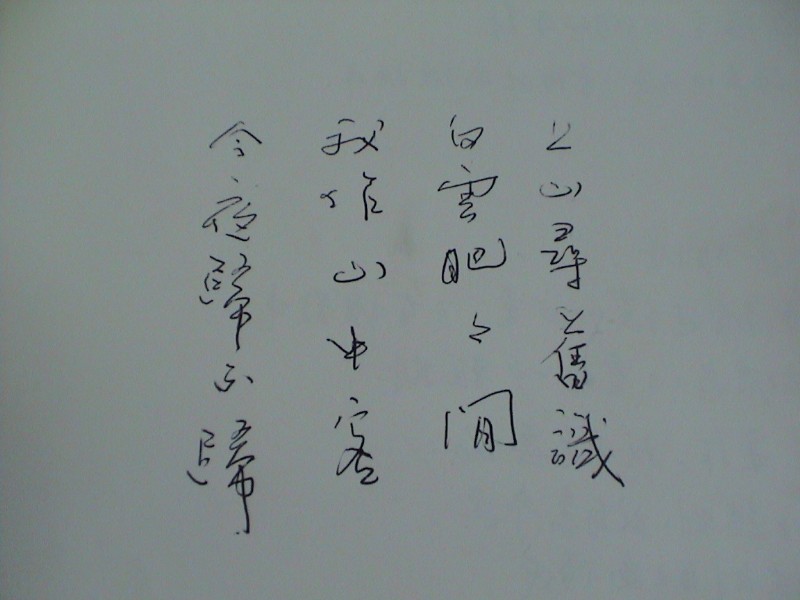 上山尋舊識
白雲肥々閒
我作山中客
今夜歸不歸